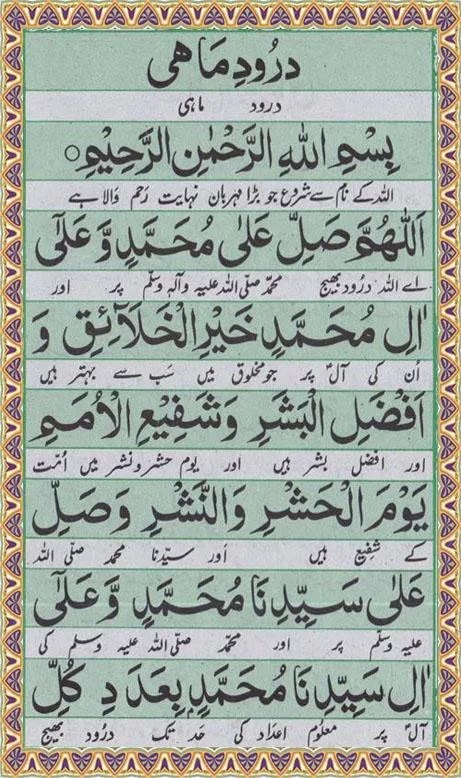 درُودِ مَاهی
درود ماہی
بِسْمِ اللهِ الرَّحْمٰنِ الرَّحِيْمِ ○
اللہ کے نام سے شروع جو بڑا مہربان نہایت رحم والا ہے
اَللّٰهُمَّ صَلِّ عَلٰى مُحَمَّدٍ وَّ عَلٰٓى
اے اللہ درُود بھیج محمّد صلّی اللہ علیہ وآلہٖ وسلّم پر اور
اٰلِ مُحَمَّدٍ خَيْرِ الْخَلَآئِقِ وَ
اُن کی آلؑ پر جو مخلوق میں سَب سے بہتر ہیں
اَفْضَلِ الْبَشَرِ وَشَفِيْعِ الْاُمَمِ
اور افضل بشر ہیں اور یوم حشر و نشر میں اُمّت
يَوْمَ الْحَشْرِ وَالنَّشْرِ وَصَلِّ
کے شفِیع ہیں اَور سیّدنا محمد صلّی اللہ
عَلٰى سَيِّدِنَا مُحَمَّدٍ وَّ عَلٰٓى
علیہ وسلّم پر اور محمّد صلّی اللہ علیہ وسلم کی
اٰلِ سَيِّدِنَا مُحَمَّدٍ بِعَدَدِ كُلِّ
آلؑ پر معلوم اعدَاد کی حَد تک درُود بھیج